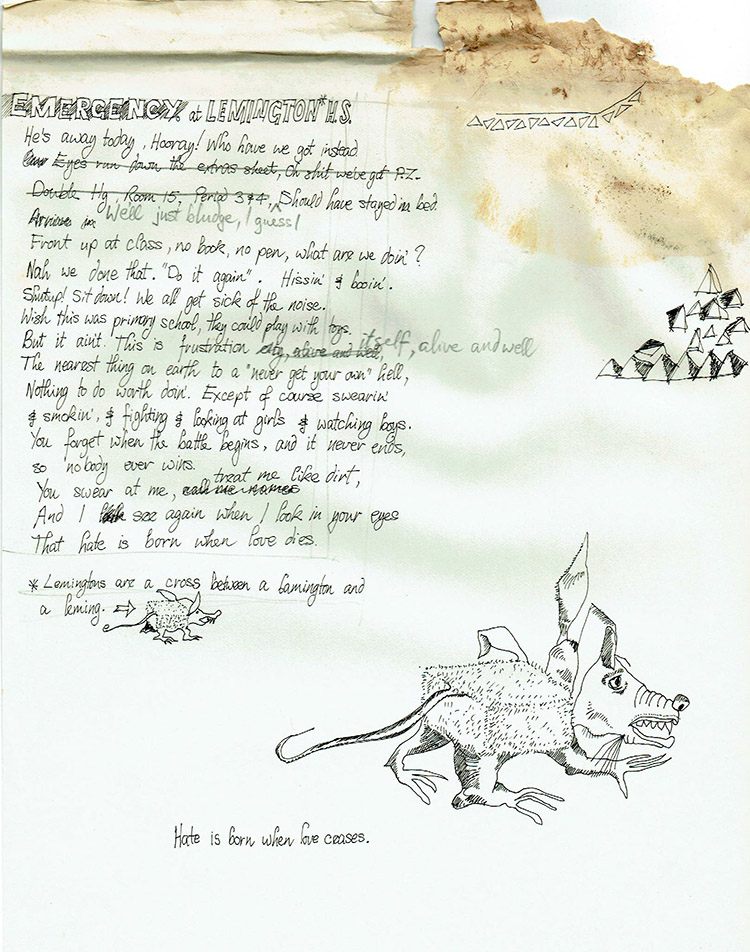 EMERGENCY at LEMINGTON* H.S.
He's away today, Hooray! Who have we got instead
Eyes run down the extras sheet, Oh shit we've got P.Z.
Double Hg, Room 15, Period 3&4, Should have stayed in bed.
We'll just bludge, I guess!
Front up at class, no book, no pen, what are we doin'?
Nah we done that. "Do it again". Hissin' & booin'.
Shutup! Sit down! We all get sick of the noise.
Wish this was primary school, they could play with toys.
But it ain't. This is frustration alive and well, itself, alive and well
The nearest thing on earth to a "never get your own" hell,
Nothing to do worth doin'. Except of course swearin'
& smokin', & fighting & looking at girls & watching boys.
You forget when the battle begins, and it never ends,
so nobody ever wins.
You swear at me, call me names treat me like dirt,
And I see again when I look in your eyes
That hate is born when love dies.
* Lemingtons are a cross between a lamington and
a leming. ⇨
Hate is born when love ceases.